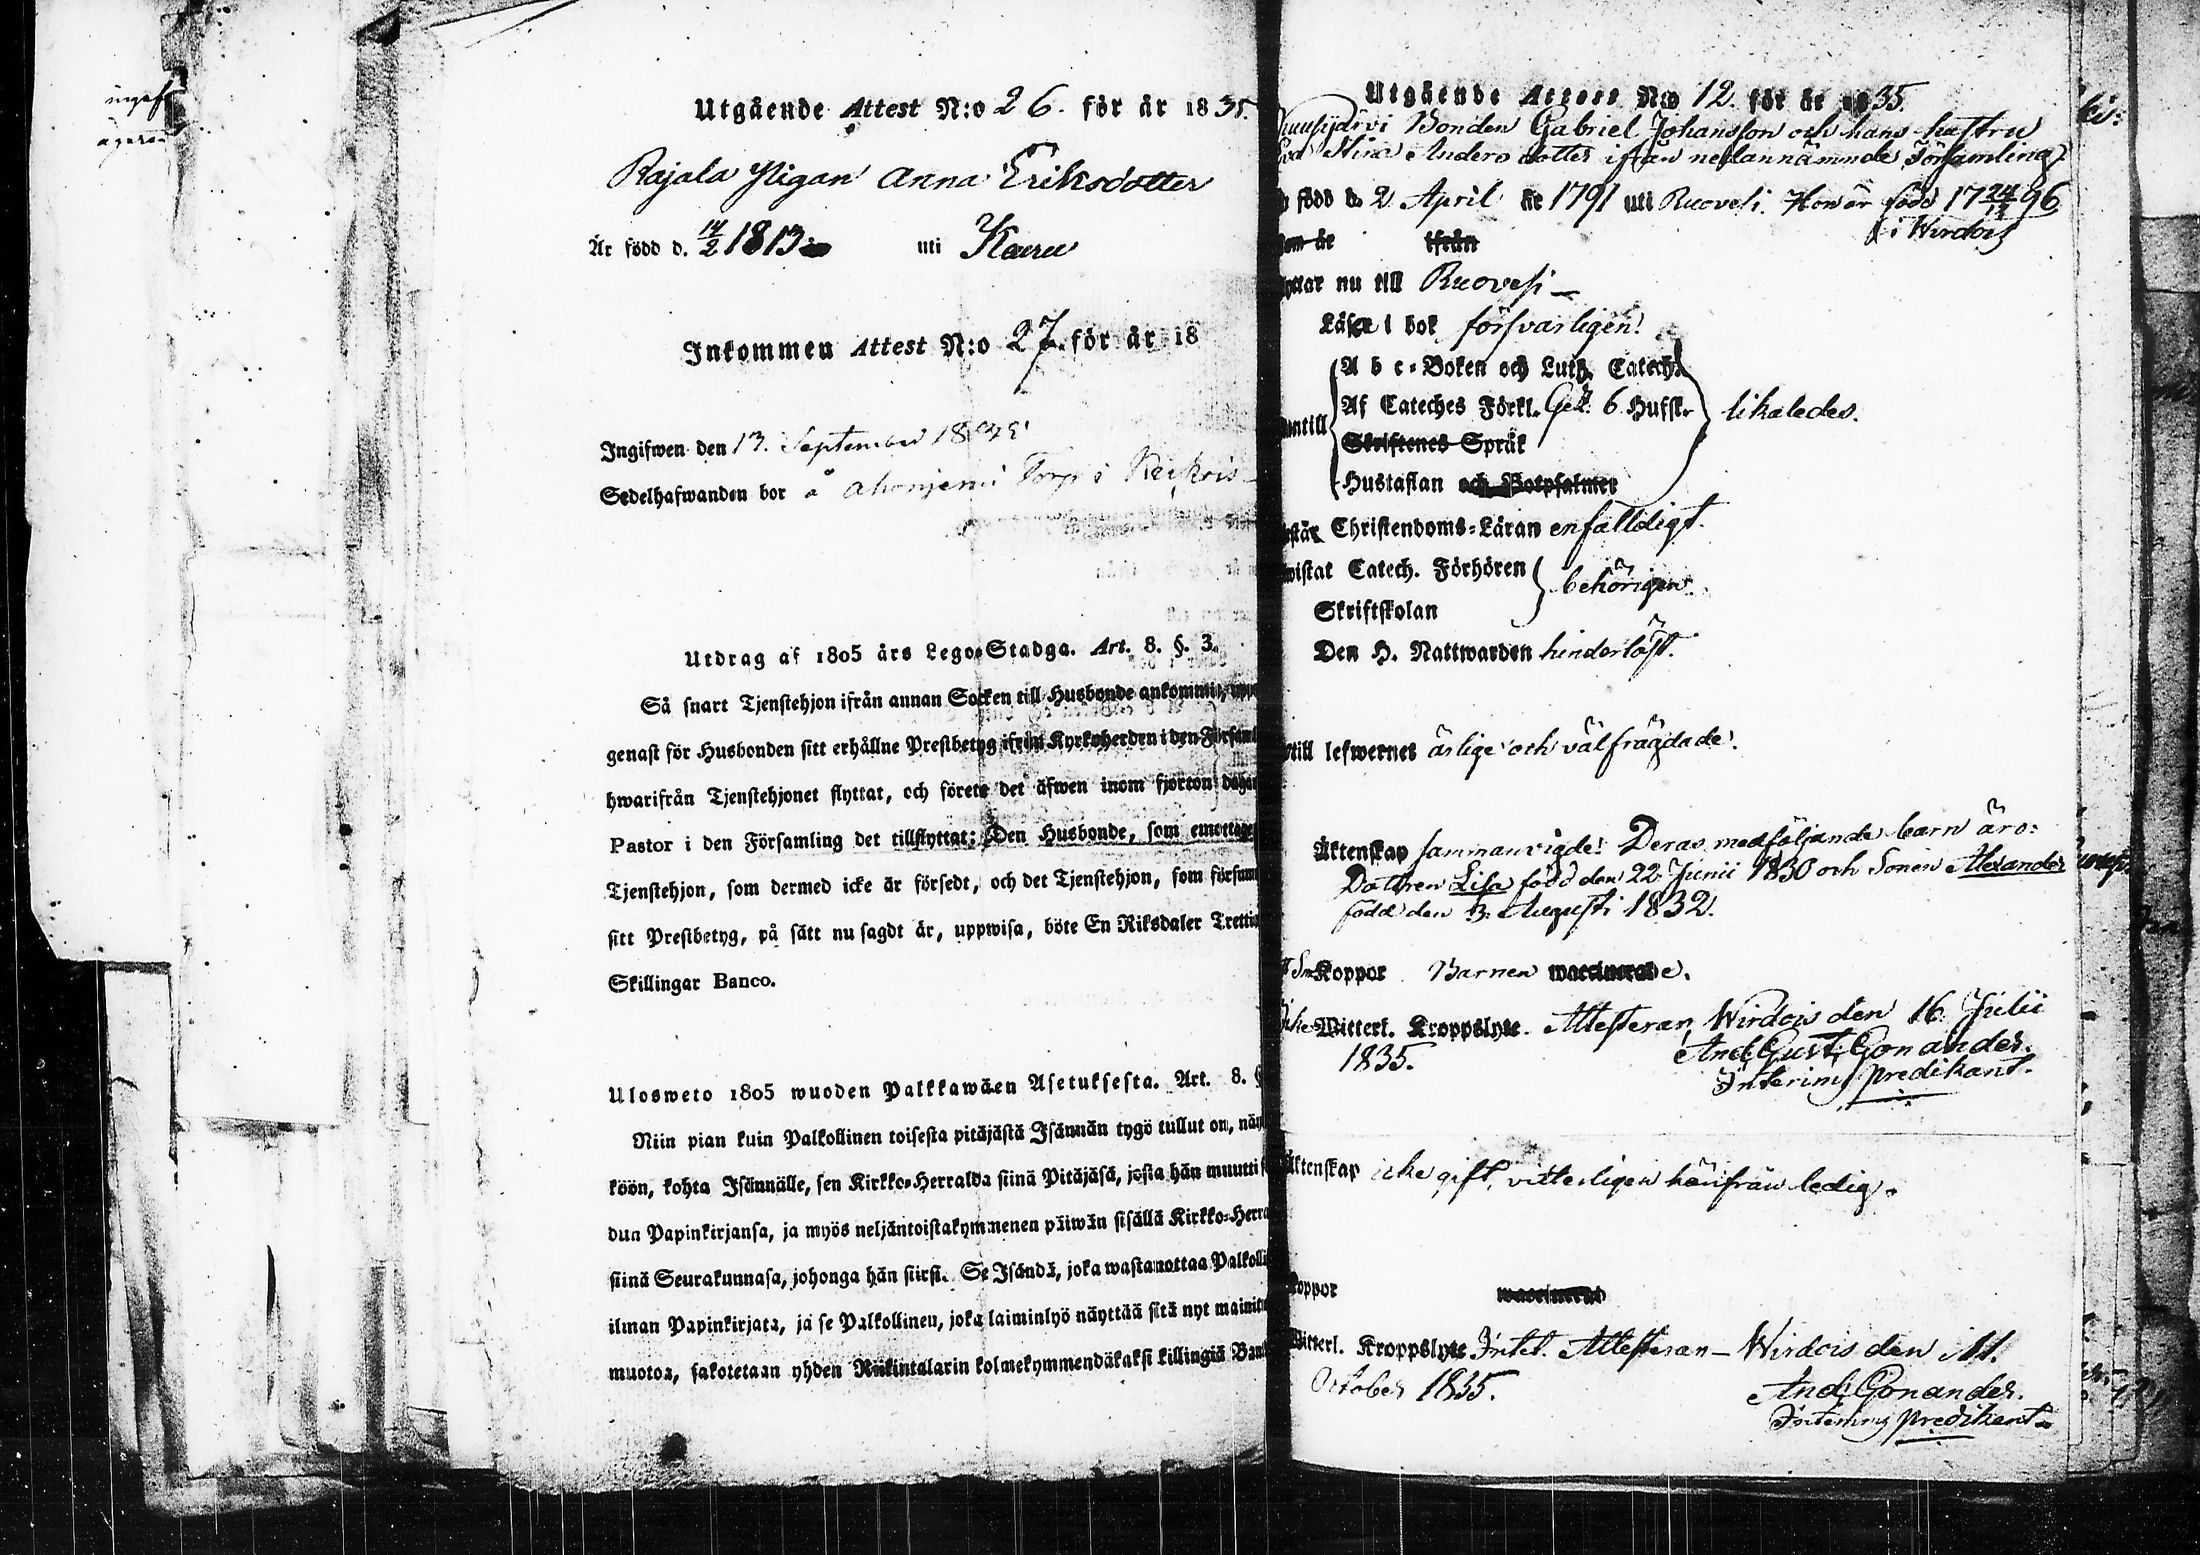 Utgående Attest N:o 26. för år 1835.
Rajala Pigan Anna Eriksdotter
Är född d. 14/2 1813 uti Keuru
Inkommen Attest N:o 27. för år 18
Ingifwen den 13. September 18
Sedelhafwanden bor å Torp i
Utdrag af 1805 års Lego-Stadga. Art. 8. §. 3.
Så snart Tjenstehjon ifrån annan Socken till Husbonde ankommit,
genast för Husbonden sitt erhållne Prestbetyg ifrån Kyrkoherden i den Församl
hwarifrån Tjenstehjonet flyttat, och förete det äfwen inom fjorton dagar
Pastor i den Församling det tillflyttat; Den Husbonde, som emottager
Tjenstehjon, som dermed icke är försedt, och det Tjenstehjon, som försum
sitt Prestbetyg, på sätt nu sagdt är, uppwisa, böte En Riksdaler Trettio
Skillingar Banco.
Ulosweto 1805 wuoden Palkkawäen Asetuksesta. Art. 8. §
Niin pian kuin Palkollinen toisesta pitäjästä Isännän tygö tullut on, näyt
köön, kohta Isännälle, sen Kirkko-Herralda siinä Pitäjäsä, josta hän muutti
dun Papinkirjansa, ja myös neljäntoistakymmenen päiwän sisällä Kirkko-Herra
siinä Seurakunnasa, johonga hän siirsi. Se Isändä, joka wastanottaa Palkolli
ilman Papinkirjata, ja se Palkollinen, joka laiminlyö näyttää sitä nyt mainitu
muotoa, sakotetaan yhden Riikintalarin kolmekymmendäkaksi killingiä Banko
Utgående Attest N:o 12. för år 1835.
Bonden Gabriel Johansson och hans hustru
Stina Anders dotter ifrån nedannämnde Församling,
född d. 2 April år 1791 uti Ruovesi. Hon är född 17 24/12 96
i Wirdois
Som är ifrån
yttar nu till Ruovesi
Läser i bok försvarligen.
A b c-Boken och Luth. Catech.
Af Cateches Förkl. 6 Hufst. likaledes.
antill
Skriftenes Språk
Hustaflan och Botpsalmer
rstår Christendoms-Läran enfaldigt.
wistat Catech. Förhören behörigen.
Skriftskolan
Den H. Nattwarden hinderlöst.
till lefwernet ärlige och välfrägdade.
Äktenskap sammanvigde. Deras medföljande barn äro:
Dottren Lisa född den 22 Junii 1830 och Sonen Alexander
född den 3. Augusti 1832.
Koppor Barnen waccinerade.
Witterl. Kroppslyte. Attesteran, Wirdois den 16 Julii
1835. And. Gust. Gonander.
Interims predikant.
Äktenskap icke gift, vitterligen härifrån ledig.
Koppor waccinerad
Witterl. Kroppslyte Intet. Attesteran Wirdois den 11.
October 1835. And. Gonander.
Interims predikant.